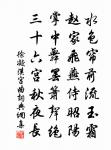 水色簾前流玉霜
趙家飛燕侍昭陽
掌中舞罷簫聲絕
三十六宮秋夜長
徐凝漢宮曲詩典撰集